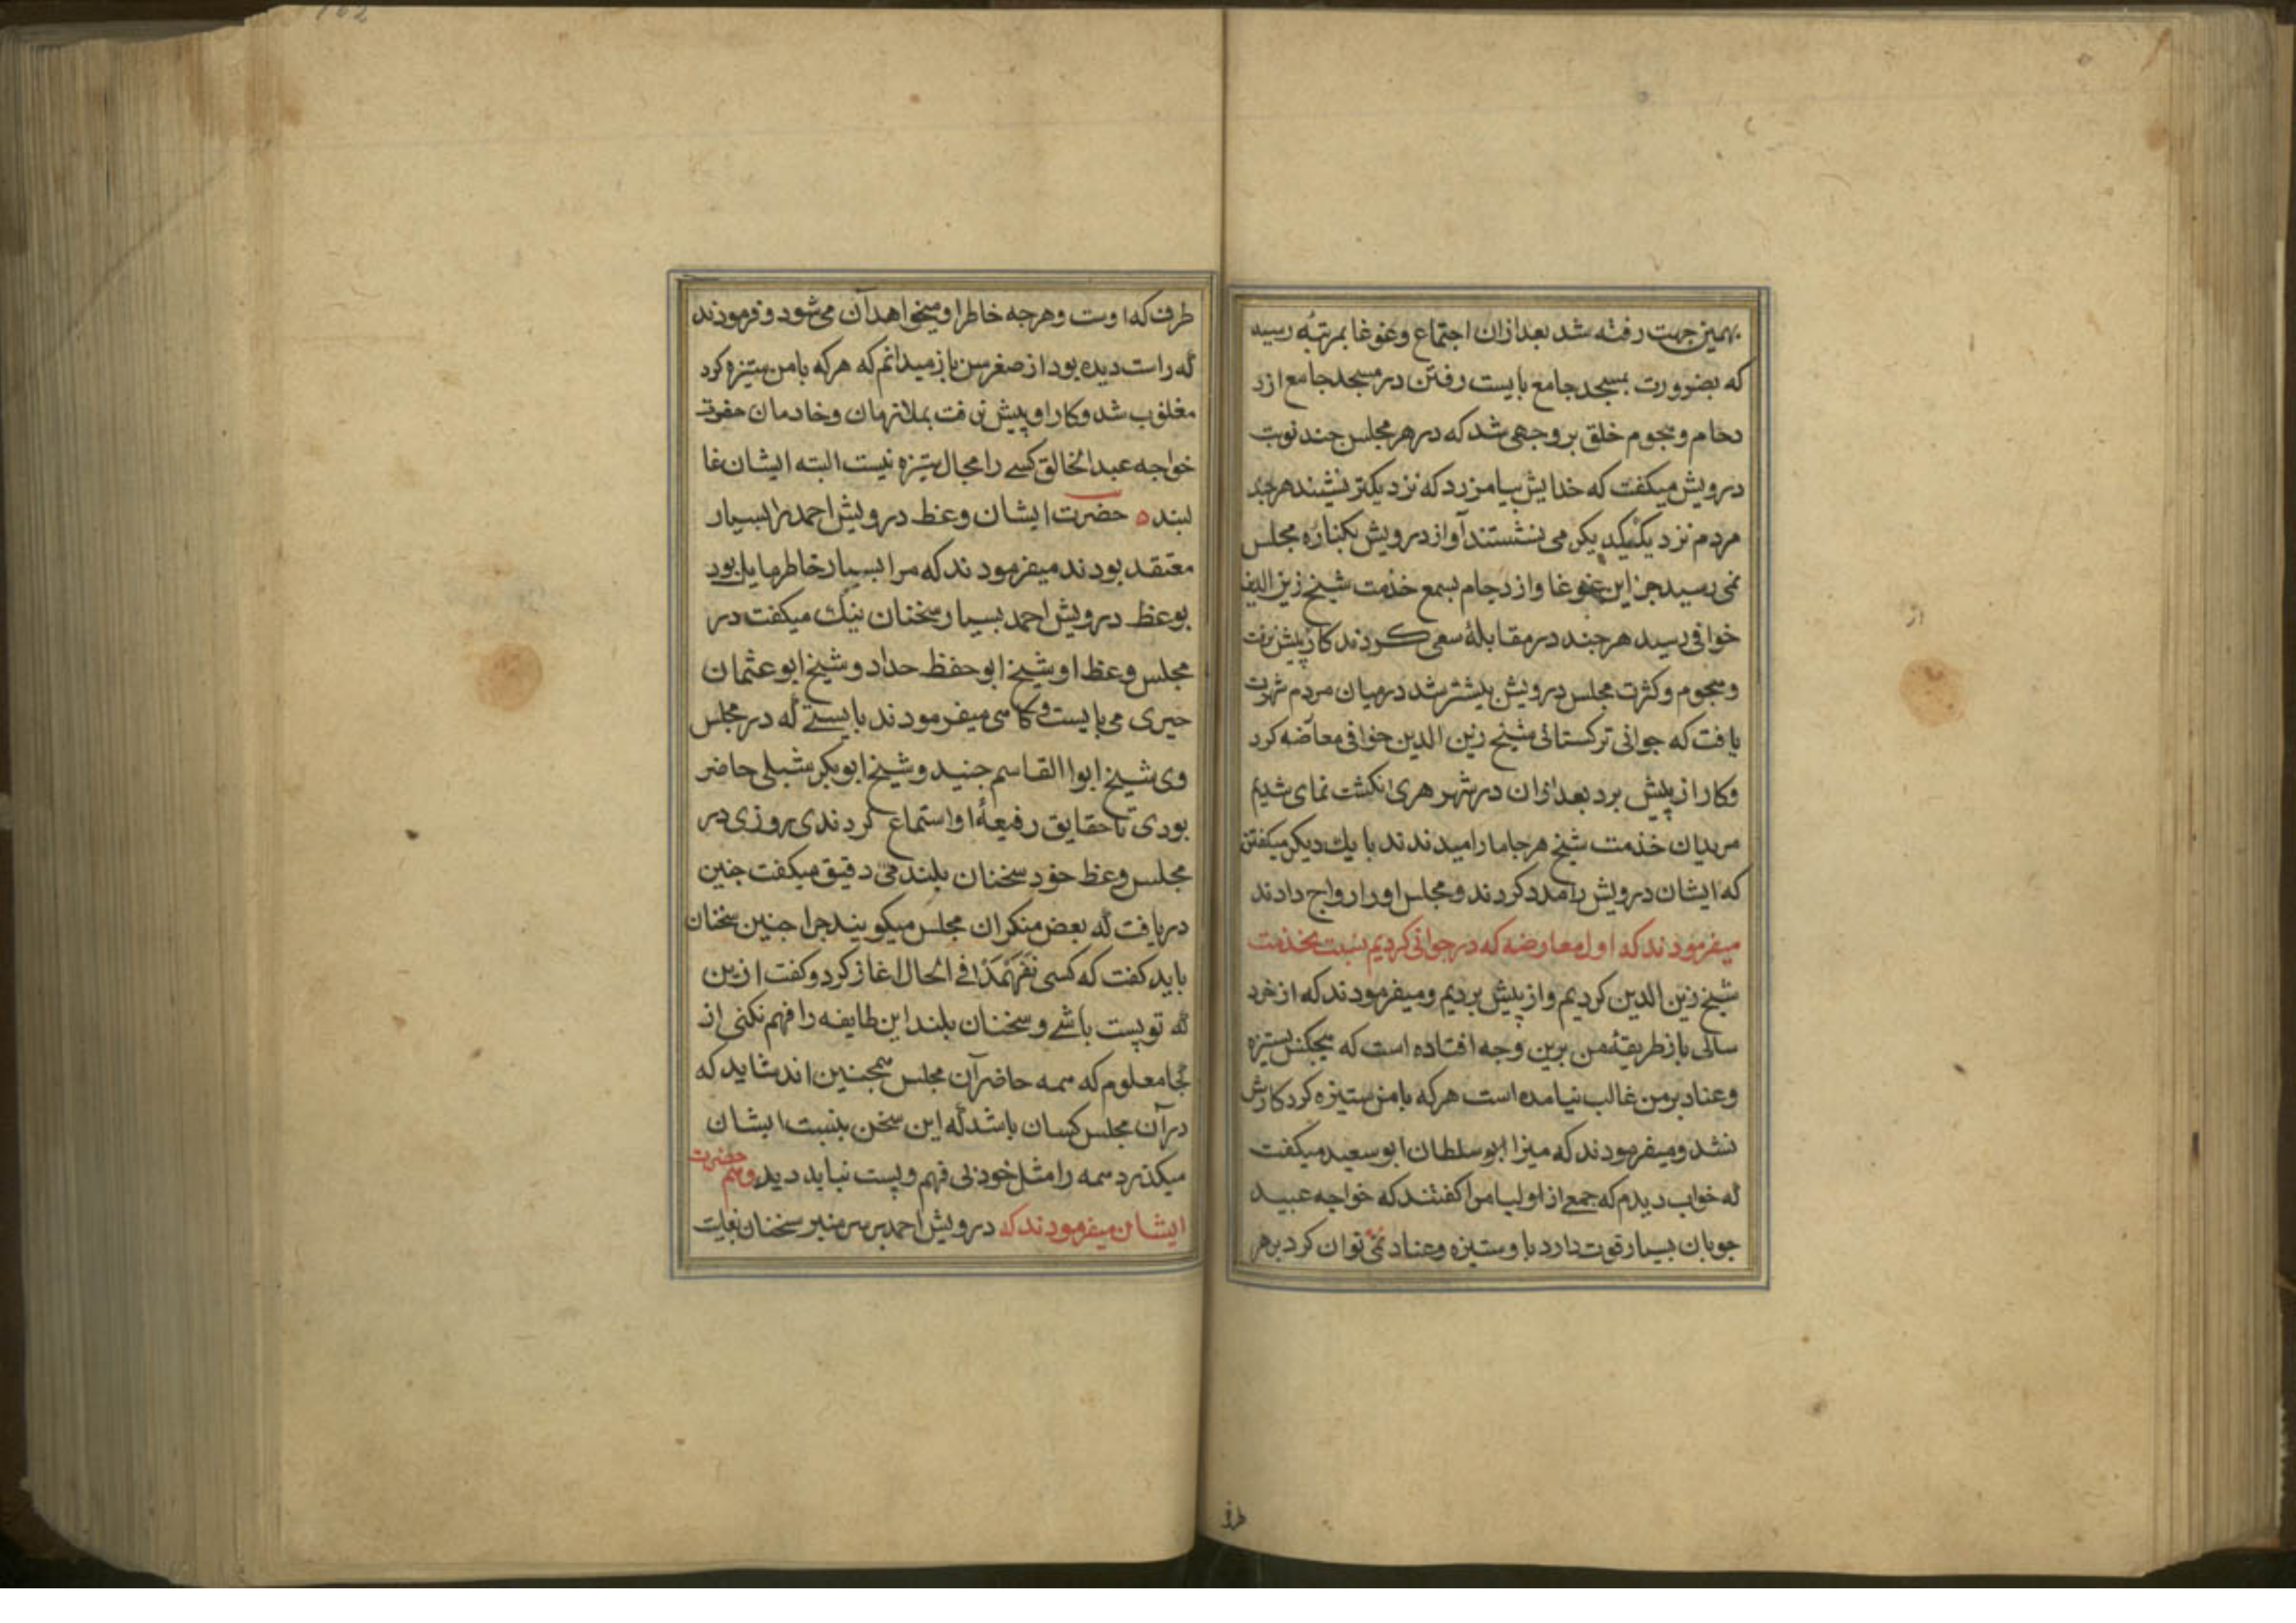 بهمین جهت رفته شد بعد ازان اجتماع و غوغا بمرتبه رسید
که بضرورت بمسجد جامع بایست رفتن در مسجد جامع ازد
حام و هجوم خلق بر وجهی شد که در هر مجلس چند نوبت
درویش میکفت که خدایش بیامرزد که نزدیکتر نشیند هرچند
مردم نزدیک یکدیکر می نشستند آواز درویش بکناره مجلس
نمی رسید جز این غوغا و ازدحام بسمع خدمت شیخ زین الدین
خوافی رسید هر چند در مقابلهٔ سعی کردند کار پیش نرفت
و هجوم و کثرت مجلس درویش بیشتر شد در میان مردم شهرت
یافت که جوانی ترکستانی شیخ زین الدین خوافی معارضه کرد
و کار از پیش برد بعد ازان در شهر هری انکشت نمای شدیم
مریدان خدمت شیخ هرجا ما را میدیدند با یك دیکر میکفتن
که ایشان درویش را مدد کردند و مجلس او را رواج دادند
میفرمودند که اول معارضه که در جوانی کردیم نسبت بخدمت
شیخ زین الدین کردیم و از پیش بردیم و میفرمودند که از خرد
سالی باز طریقهٔ من برین وجه افتاده است که هیچکس بستیزه
و عناد بر من غالب نیامده است هرکه با من ستیزه کرد کارش
نشد و میفرمودند که میرزا ابو سلطان ابو سعید میکفت
که خواب دیدم که جمعی از اولیا مرا کفتند که خواجه عبید
جوبان بسیار قوت دارد با و ستیزه و عناد نمی توان کرد بر هر
طرف
طرف که اوست و هر جه خاطر او میخواهد آن می شود و فرمودند
که راست دیده بود از صغر سن باز میدانم که هر که با من ستیزه کرد
مغلوب شد و کار او پیش نرفت بملازمان و خادمان حضرت
خواجه عبد الخالق کسی را مجال ستیزه نیست البته ایشان غا
لبند ه حضرت ایشان وعظ درویش احمد را بسیار
معتقد بودند میفرمودند که مرا بسیار خاطر مایل بود
بوعظ درویش احمد بسیار سخنان نیک میکفت در
مجلس وعظ او شیخ ابو حفظ حداد و شیخ ابو عثمان
حیری می بایست و کاهی میفرمودند بایستی که در مجلس
وی شیخ ابوا القاسم جنید و شیخ ابو بکر شبلی حاضر
بودی تا حقایق رفیعهٔ او استماع کردندی روزی در
مجلس وعظ خود سخنان بلند می دقیق میکفت جنین
دریافت که بعض منکران مجلس میکویند جرا جنین سخنان
باید کفت که کسی نفهمد فی الحال اغاز کرد و کفت ازین
که تو پست باشی و سخنان بلند این طایفه را فهم نکنی از
کجا معلوم که همه حاضر آن مجلس همجنین اند شاید که
در آن مجلس کسان باشد که این سخن بنسبت ایشان
میکذرد همه را مثل خود بی فهم و پست نباید دید و هم حضرت
ایشان میفرمودند که درویش احمد بر سر منبر سخنان بغایت